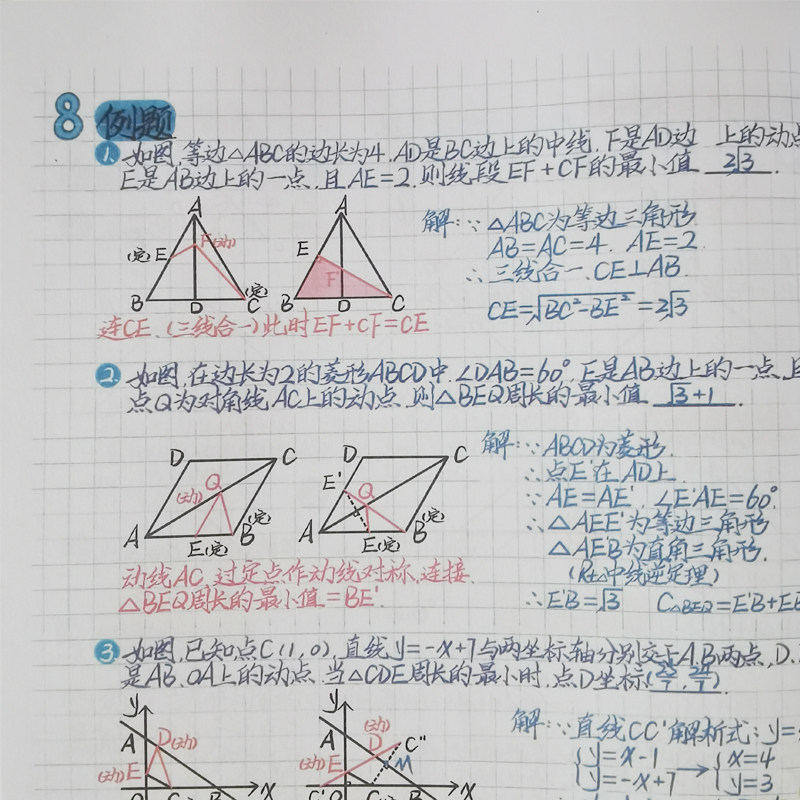 8 例题
1. 如图,等边△ABC的边长为4,AD是BC边上的中线,F是AD边 上的动点
E是AB边上的一点,且AE=2,则线段EF+CF的最小值 2√3.
A
E
F(动)
(定)
B
D
C
(定)
A
E
F
B
D
C
连CE.(三线合一)此时EF+CF=CE
解:∵△ABC为等边三角形
AB=AC=4. AE=2.
∴三线合一.CE⊥AB.
CE=√BC²-BE²=2√3
2. 如图,在边长为2的菱形ABCD中,∠DAB=60°,E是AB边上的一点,且
点Q为对角线AC上的动点,则△BEQ周长的最小值 √3+1.
D
C
(动)
Q
A
E(定)
B
(定)
D
C
E'
Q
A
E(定)
B
(定)
动线AC,过定点作动线对称,连接.
△BEQ周长的最小值=BE'.
解:∵ABCD为菱形.
∴点E'在AD上.
∵AE=AE',∠E'AE=60°
∴△AEE'为等边三角形
△AEB为直角三角形.
(Rt△中线逆定理)
∴E'B=√3 C△BEQ=E'B+EB
3. 如图,已知点C(1,0),直线y=-x+7与两坐标轴分别交于A.B两点,D.
是AB、OA上的动点.当△CDE周长的最小时,点D坐标
y
A
D(动)
(动)E
x
y
(动)
A
D
C''
M
(动)
E
x
解:∵直线CC'解析式:y=
{y=x-1
{y=-x+7
→
{x=4
{y=3